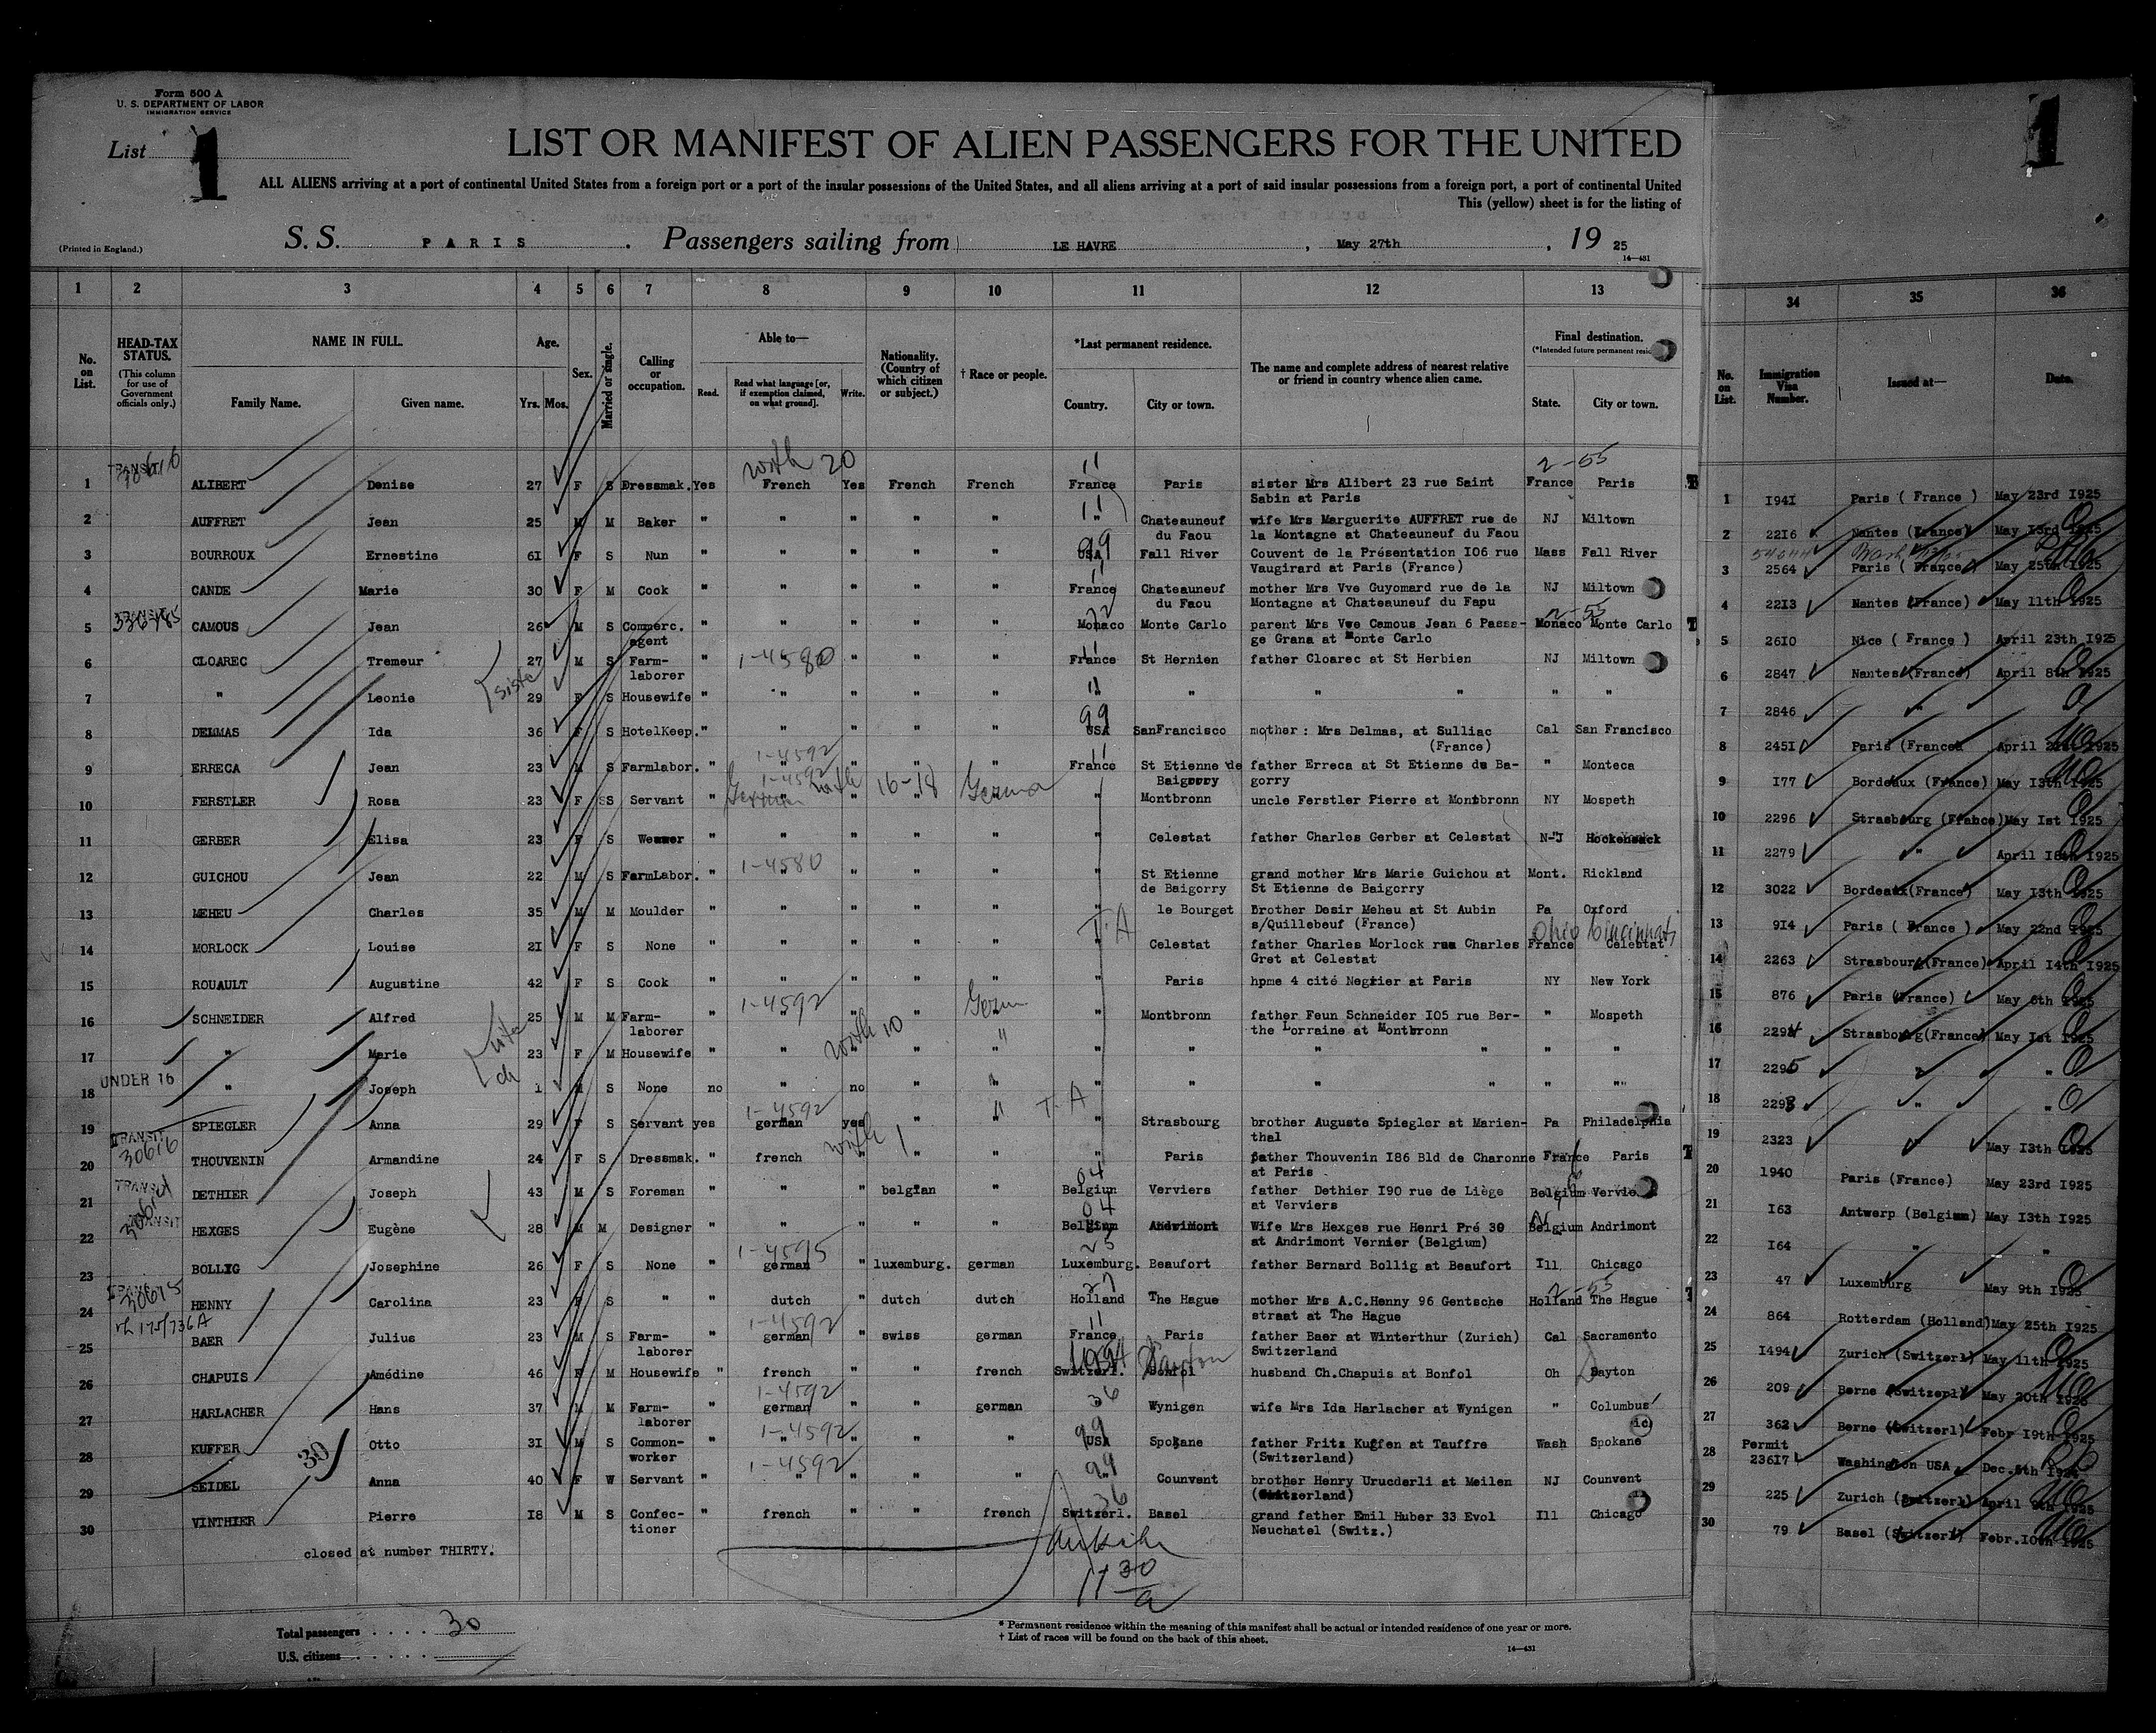 Form 500 A
U. S. DEPARTMENT OF LABOR
IMMIGRATION SERVICE
List 1
1
LIST OR MANIFEST OF ALIEN PASSENGERS FOR THE UNITED
ALL ALIENS arriving at a port of continental United States from a foreign port or a port of the insular possessions of the United States, and all aliens arriving at a port of said insular possessions from a foreign port, a port of continental United
This (yellow) sheet is for the listing of
(Printed in England.)
S. S. PARIS . Passengers sailing from LE HAVRE , May 27th , 19 25
14—431
1 2 3 4 5 6 7 8 9 10 11 12 13 34 35 36
No. on List.
HEAD-TAX STATUS.
(This column for use of Government officials only.)
NAME IN FULL.
Family Name. Given name.
Age.
Yrs. Mos.
Sex.
Married or single.
Calling or occupation.
Able to—
Read. Read what language [or, if exemption claimed, on what ground]. Write.
Nationality. (Country of which citizen or subject.)
† Race or people.
*Last permanent residence.
Country. City or town.
The name and complete address of nearest relative or friend in country whence alien came.
Final destination.
State. City or town.
No. on List.
Immigration Visa Number.
Issued at—
Date.
with 20 11 2-55
1 TRANSIT ALIBERT Denise 27 F S Dressmak. Yes French Yes French French France Paris sister Mrs Alibert 23 rue Saint France Paris 1 I94I Paris ( France ) May 23rd I925
Sabin at Paris
2 AUFFRET Jean 25 M M Baker " " " " " " Chateauneuf wife Mrs Marguerite AUFFRET rue de NJ Miltown 2 22I6 Nantes (France) May I3rd I925
du Faou la Montagne at Chateauneuf du Faou
3 BOURROUX Ernestine 6I F S Nun " " " " " USA Fall River Couvent de la Présentation I06 rue Mass Fall River 3 2564 Paris ( France May 25th I925
Vaugirard at Paris (France)
4 CANDE Marie 30 F M Cook " " " " " France Chateauneuf mother Mrs Vve Guyomard rue de la NJ Miltown 4 22I3 Nantes (France) May 11th I925
du Faou Montagne at Chateauneuf du Fapu
5 CAMOUS Jean 26 M S Commerc. " " " " " Monaco Monte Carlo parent Mrs Vve Camous Jean 6 Passa- Monaco Monte Carlo 5 26I0 Nice ( France ) April 23th I925
agent ge Grana at Monte Carlo
1-4580
6 CLOAREC Tremeur 27 M S Farm- " " " " France St Hernien father Cloarec at St Herbien NJ Miltown 6 2847 Nantes (France) April 8th I925
laborer
7 " Leonie 29 F S Housewife " " " " " " " " " " " 7 2846 "
8 DELMAS Ida 36 F S HotelKeep. " " " " " USA SanFrancisco mother : Mrs Delmas, at Sulliac Cal San Francisco 8 245I Paris (France April 21st I925
(France)
1-4592
9 ERRECA Jean 23 M S Farmlabor. " " " " " France St Etienne de father Erreca at St Etienne de Ba- " Monteca 9 I77 Bordeaux (France) May I3th I925
Baigorry gorry
1-4592 German with 16-18 German
10 FERSTLER Rosa 23 F S Servant " " " " " " Montbronn uncle Ferstler Pierre at Montbronn NY Mospeth 10 2296 Strasbourg (France) May Ist I925
11 GERBER Elisa 23 F S " " " " " " Celestat father Charles Gerber at Celestat N-J Hockensack 11 2279 " April I8th I925
1-4580
12 GUICHOU Jean 22 M S FarmLabor. " " " " " St Etienne grand mother Mrs Marie Guichou at Mont. Rickland 12 3022 Bordeaux(France) May I3th I925
de Baigorry St Etienne de Baigorry
13 MEHEU Charles 35 M M Moulder " " " " " " le Bourget Brother Desir Meheu at St Aubin Pa Oxford 13 9I4 Paris ( France ) May 22nd I925
s/Quillebeuf (France)
T.A Ohio Cincinnati
14 MORLOCK Louise 2I F S None " " " " " " Celestat father Charles Morlock rue Charles France Celestat 14 2263 Strasbourg(France) April I4th I925
Gret at Celestat
15 ROUAULT Augustine 42 F S Cook " " " " " " Paris hpme 4 cité Negrier at Paris NY New York 15 876 Paris (France) May 6th I925
1-4592 Germ
16 SCHNEIDER Alfred 25 M M Farm- " " " " " " Montbronn father Feun Schneider I05 rue Ber- " Mospeth 16 2294 Strasbourg(France) May Ist I925
laborer the Lorraine at Montbronn
with 10
17 " Marie 23 F M Housewife " " " " " " " " " " " 17 2295 " "
UNDER 16
18 " Joseph 1 M S None no " no " " " " " " " " 18 2293 " "
1-4592 T.A
19 SPIEGLER Anna 29 F S Servant yes german yes " " " Strasbourg brother Auguste Spiegler at Marien- Pa Philadelphia 19 2323 " May I3th I925
thal
TRANSIT 30616 with 1
20 THOUVENIN Armandine 24 F S Dressmak. " french " " " " Paris father Thouvenin I86 Bld de Charonne France Paris 20 I940 Paris (France) May 23rd I925
at Paris
TRANSIT 04
21 DETHIER Joseph 43 M S Foreman " " " belgian " Belgium Verviers father Dethier I90 rue de Liège Belgium 21 I63 Antwerp (Belgium) May I3th I925
at Verviers
TRANSIT 04
22 HEXGES Eugène 28 M M Designer " " " " " Belgium Andrimont Wife Mrs Hexges rue Henri Pré 30 Belgium Andrimont 22 I64 " "
at Andrimont Vernier (Belgium)
1-4595 25
23 BOLLIG Josephine 26 F S None " german " luxemburg. german Luxemburg. Beaufort father Bernard Bollig at Beaufort Ill Chicago 23 47 Luxemburg May 9th I925
30615 27 2-55
24 HENNY Carolina 23 F S " " dutch " dutch dutch Holland The Hague mother Mrs A.C.Henny 96 Gentsche Holland The Hague 24 864 Rotterdam (Holland) May 25th I925
straat at The Hague
1-4592 11
25 BAER Julius 23 M S Farm- " german " swiss german France Paris father Baer at Winterthur (Zurich) Cal Sacramento 25 I494 Zurich (Switzerl) May 11th I925
laborer Switzerland
Dayton
26 CHAPUIS Amédine 46 F M Housewife " french " " french Switzerl. Bonfol husband Ch.Chapuis at Bonfol Oh Dayton 26 209 Berne (Switzerl) May 20th I925
1-4592 36
27 HARLACHER Hans 37 M M Farm- " german " " german " Wynigen wife Mrs Ida Harlacher at Wynigen " Columbus 27 362 Berne (Switzerl) Febr I9th I925
laborer
1-4592 99
28 KUFFER Otto 3I M S Common- " " " " " USA Spokane father Fritz Kuffen at Tauffre Wash Spokane 28 Permit 236I7 Washington USA. Dec.8th
worker (Switzerland)
1-4592 99
29 SEIDEL Anna 40 F W Servant " " " " " " Counvent brother Henry Urucderli at Meilen NJ Counvent 29 225 Zurich (Switzerl) April I925
(Switzerland)
36
30 VINTHIER Pierre I8 M S Confec- " french " " french Switzerl. Basel grand father Emil Huber 33 Evol Ill Chicago 30 79 Basel (Switzerl) Febr.I0th I925
tioner Neuchatel (Switz.)
30
closed at number THIRTY.
Total passengers . . . . 30
U.S. citizens . . . . . .
* Permanent residence within the meaning of this manifest shall be actual or intended residence of one year or more.
† List of races will be found on the back of this sheet.
14—431